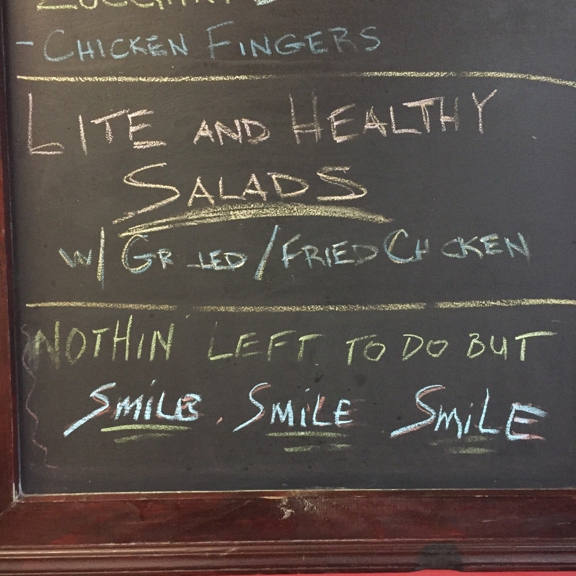 - CHICKEN FINGERS
LITE AND HEALTHY
SALADS
W/ GR LLED / FRIED CH CKEN
NOTHIN' LEFT TO DO BUT
SMILE, SMILE SMILE